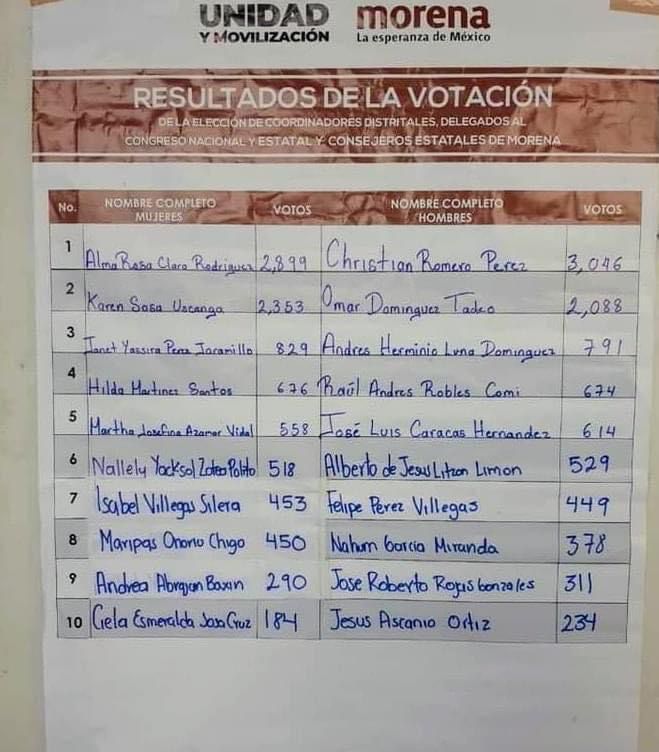 UNIDAD morena
Y MOVILIZACIÓN La esperanza de México
RESULTADOS DE LA VOTACIÓN
DE LA ELECCIÓN DE COORDINADORES DISTRITALES, DELEGADOS AL
CONGRESO NACIONAL Y ESTATAL Y CONSEJEROS ESTATALES DE MORENA
No. NOMBRE COMPLETO MUJERES VOTOS NOMBRE COMPLETO HOMBRES VOTOS
1 Alma Rosa Claro Rodriguez 2,899 Christian Romero Perez 3,046
2 Karen Sosa Uscanga 2,353 Omar Dominguez Tadeo 2,088
3 Janet Yassira Perez Jaramillo 829 Andres Herminio Luna Dominguez 791
4 Hilda Martinez Santos 676 Raúl Andres Robles Comi 674
5 Martha Josefina Azamar Vidal 558 José Luis Caracas Hernandez 614
6 Nallely 518 Alberto de Jesus Litzon Limon 529
7 Isabel Villegas Silera 453 Felipe Perez Villegas 449
8 Chigo 450 Nahum Garcia Miranda 378
9 Andrea 290 Jose Roberto Rojas Gonzales 311
10 Esmeralda Cruz 184 Jesus Ascanio Ortiz 234